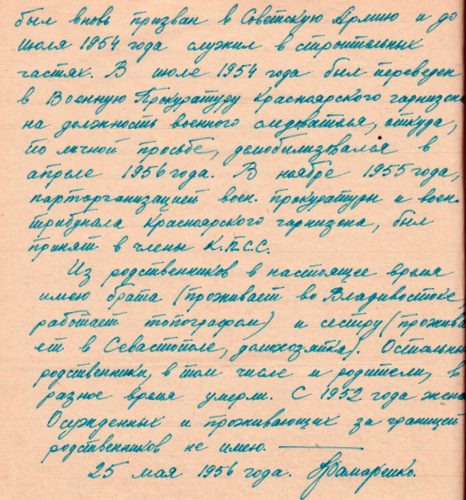 был вновь призван в Советскую Армию и до
июля 1954 года служил в строительных
частях. В июле 1954 года был переведен
в Военную Прокуратуру Красноярского гарнизона
на должность военного следователя, откуда,
по личной просьбе, демобилизовался в
апреле 1956 года. В ноябре 1955 года,
парторганизацией воен. прокуратуры и воен.
трибунала Красноярского гарнизона, был
принят в члены К.П.С.С.
Из родственников в настоящее время
имею брата (проживает во Владивостоке,
работает топографом) и сестру (прожива
ет в Севастополе, домохозяйка). Остальные
родственники, в том числе и родители, в
разное время умерли. С 1952 года женат
Осужденных и проживающих за границей
родственников не имею.
25 мая 1956 года.